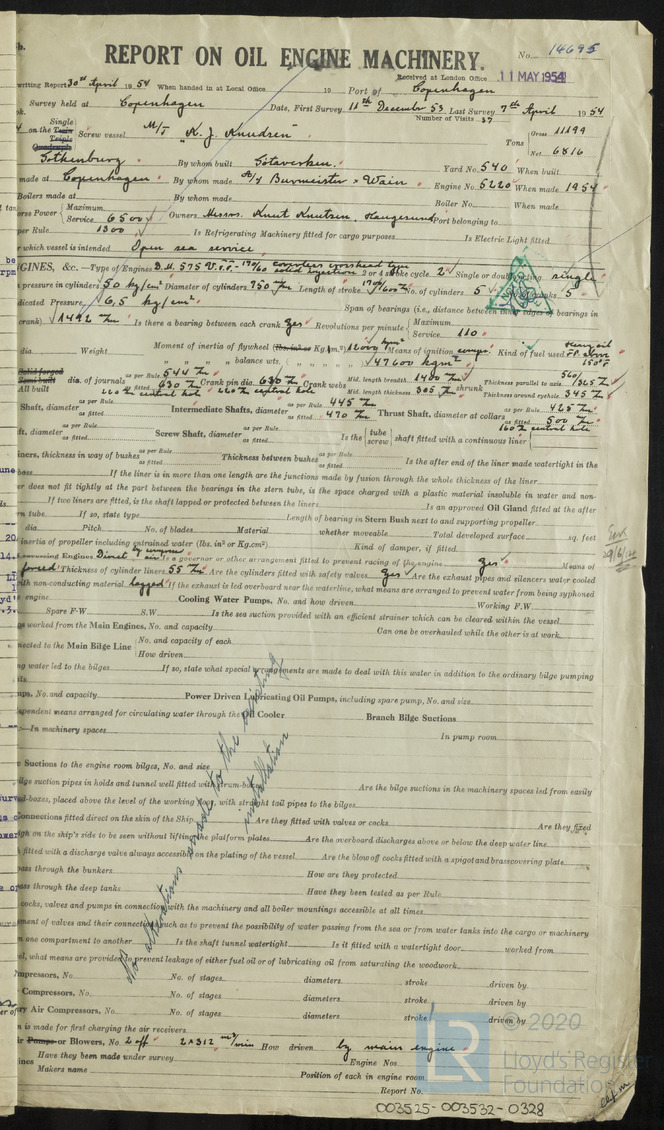 REPORT ON OIL ENGINE MACHINERY.
No. 14695
Received at London Office 11 MAY 1954
writing Report 30th April 1954 When handed in at Local Office 19 Port of Copenhagen
Survey held at Copenhagen Date, First Survey 11th December 53 Last Survey 7th April 1954
Number of Visits 37
on the Single Twin Triple Quadruple Screw vessel M/T "K. J. Knudsen" Tons Gross 11199 Net 6816
Gothenburg By whom built Götaverken. Yard No. 540 When built
made at Copenhagen By whom made A/S Burmeister & Wain Engine No. 5220 When made 1954
Boilers made at By whom made Boiler No. When made
Power Maximum Service 6500 Owners Messrs. Knut Knutsen, Haugesund Port belonging to
per Rule 1300 Is Refrigerating Machinery fitted for cargo purposes. Is Electric Light fitted.
which vessel is intended Open sea service
GINES, &c. —Type of Engines 2 or 4 stroke cycle 2 Single or double acting single
pressure in cylinders 50 kg/cm² Diameter of cylinders 750 Length of stroke No. of cylinders 5 No. of cranks 5
dicated Pressure, 6,5 kg/cm² Span of bearings (i.e., distance between inner edges of bearings in
crank) 1492 Is there a bearing between each crank yes Revolutions per minute Maximum Service 110
dia. Weight Moment of inertia of flywheel (lbs. in² or Kg.cm²) 12000 Means of ignition comp. Kind of fuel used Heavy oil F.P. above 150°F
" " " balance wts. " " " 47600 kgm²
Solid forged Semi built All built dia. of journals as per Rule 544 as fitted 630 Crank pin dia. 630 Crank webs Mid. length breadth 1400 Mid. length thickness 305 shrunk Thickness parallel to axis 560/325 Thickness around eyehole 345
central hole central hole
Shaft, diameter as per Rule as fitted Intermediate Shafts, diameter as per Rule 445 as fitted 470 Thrust Shaft, diameter at collars as per Rule 425 as fitted 500
central hole
ft, diameter as per Rule as fitted Screw Shaft, diameter as per Rule as fitted Is the tube screw shaft fitted with a continuous liner
iners, thickness in way of bushes as per Rule as fitted Thickness between bushes as per Rule as fitted Is the after end of the liner made watertight in the
boss If the liner is in more than one length are the junctions made by fusion through the whole thickness of the liner
er does not fit tightly at the part between the bearings in the stern tube, is the space charged with a plastic material insoluble in water and non-
If two liners are fitted, is the shaft lapped or protected between the liners Is an approved Oil Gland fitted at the after
tube. If so, state type Length of bearing in Stern Bush next to and supporting propeller
dia. Pitch No. of blades Material whether moveable Total developed surface sq. feet
inertia of propeller including entrained water (lbs. in² or Kg.cm²) Kind of damper, if fitted
Engines Direct by Is a governor or other arrangement fitted to prevent racing of the engine yes Means of
forced Thickness of cylinder liners 55 Are the cylinders fitted with safety valves yes Are the exhaust pipes and silencers water cooled
with non-conducting material lagged If the exhaust is led overboard near the waterline, what means are arranged to prevent water from being syphoned
engine Cooling Water Pumps, No. and how driven Working F.W.
Spare F.W. S.W. Is the sea suction provided with an efficient strainer which can be cleared within the vessel
worked from the Main Engines, No. and capacity Can one be overhauled while the other is at work
nected to the Main Bilge Line No. and capacity of each How driven
water led to the bilges If so, state what special arrangements are made to deal with this water in addition to the ordinary bilge pumping
ps, No. and capacity Power Driven Lubricating Oil Pumps, including spare pump, No. and size
pendent means arranged for circulating water through the Oil Cooler Branch Bilge Suctions
—In machinery spaces In pump room
Suctions to the engine room bilges, No. and size
lge suction pipes in holds and tunnel well fitted with strum-boxes Are the bilge suctions in the machinery spaces led from easily
d-boxes, placed above the level of the working floor, with straight tail pipes to the bilges
onnections fitted direct on the skin of the Ship Are they fitted with valves or cocks Are they fixed
igh on the ship's side to be seen without lifting the platform plates Are the overboard discharges above or below the deep water line
fitted with a discharge valve always accessible on the plating of the vessel Are the blow off cocks fitted with a spigot and brass covering plate
ass through the bunkers How are they protected
ass through the deep tanks Have they been tested as per Rule
cocks, valves and pumps in connection with the machinery and all boiler mountings accessible at all times
ement of valves and their connections such as to prevent the possibility of water passing from the sea or from water tanks into the cargo or machinery
one compartment to another Is the shaft tunnel watertight Is it fitted with a watertight door worked from
el, what means are provided to prevent leakage of either fuel oil or of lubricating oil from saturating the woodwork
No alterations made to the existing installation
mpressors, No. No. of stages diameters stroke driven by
Compressors, No. No. of stages diameters stroke driven by
ry Air Compressors, No. No. of stages diameters stroke driven by
n is made for first charging the air receivers
ir Pumps or Blowers, No. 2 off 2x312 m³/min How driven by main engine
Have they been made under survey Engine Nos.
Makers name Position of each in engine room
Report No.
© 2020
Lloyd's Register
Foundation
LR
003525-003532-0328